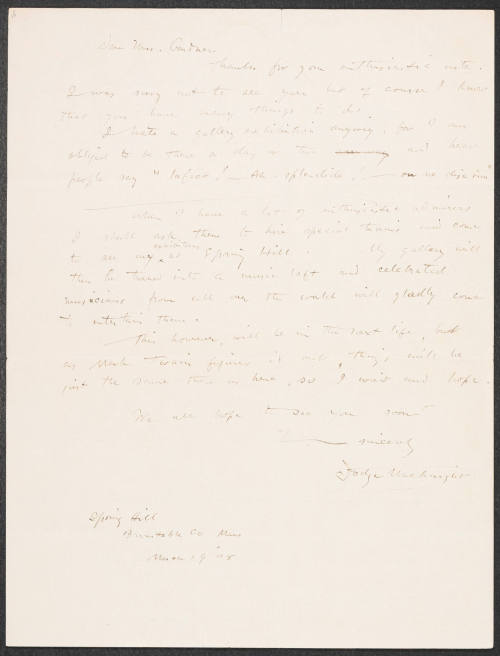 Dear Mrs. Gardner
Thanks for your enthusiastic note.
I was sorry not to see you but of course I know
that you have many things to do.
I hate a gallery exhibition anyway, for I am
obliged to be there a day or two and hear
people say "
When I have a lot of enthusiastic admirers
I shall ask them to hire special trains and come
to see my exhibitions at Spring Hill. My gallery will
then be turned into a music loft and celebrated
musicians from all over the world will gladly come
to entertain them.
This however, will be in the next life, but
as Mark Twain figures it out, things will be
just the same there as here, so I won't hope.
We all hope to see you soon
sincerely
Dodge Macknight
Spring Hill
Barnstable Co Mass
March 19" 08